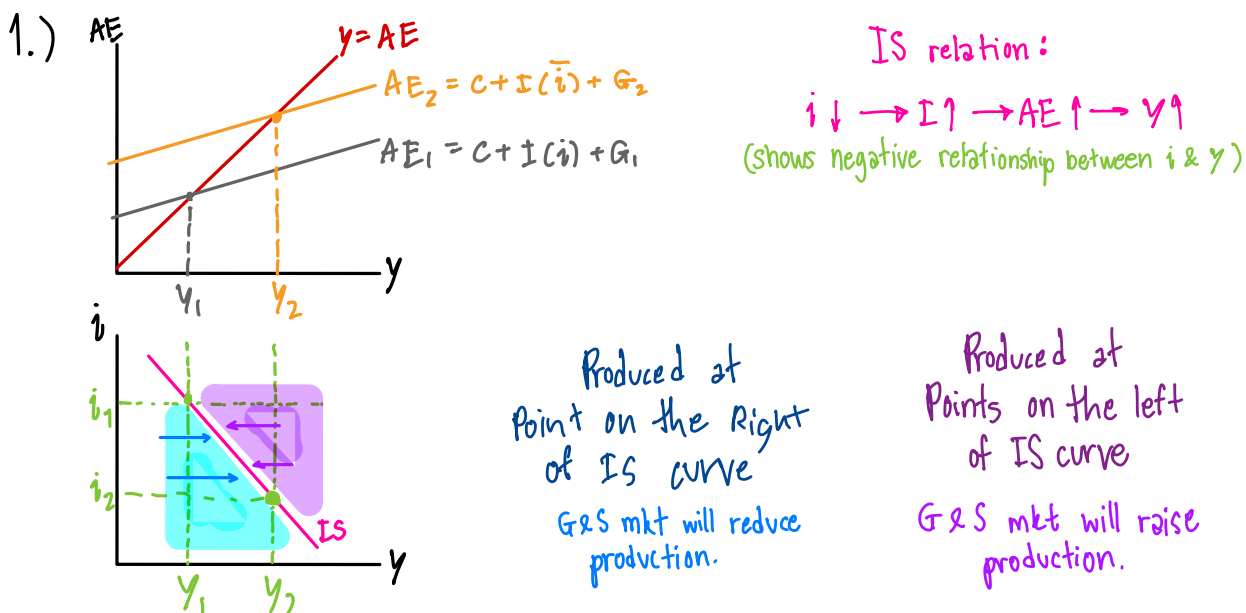 1.)
AE
y = AE
AE₂ = C + I(i̅) + G₂
AE₁ = C + I(i) + G₁
y
y₁
y₂
IS relation:
i ↓ → I↑ → AE↑ → y↑
(shows negative relationship between i & y)
i
i₁
i₂
IS
y
y₁
y₂
Produced at
Point on the Right
of IS curve
G&S mkt will reduce
production.
Produced at
Points on the left
of IS curve
G&S mkt will raise
production.